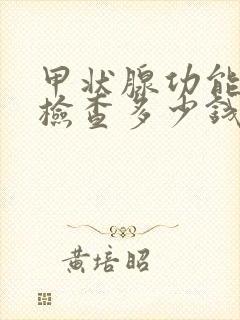 甲状腺功能
檢查多少錢
黄培昭